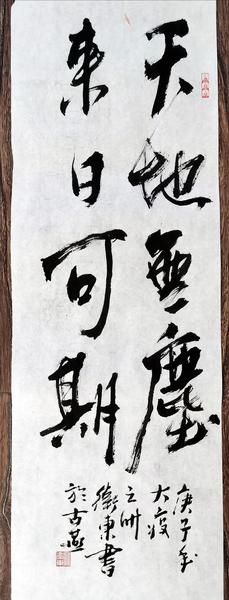 天地無塵
来日可期
庚子年
大疫
之洲
衛東書
於古燕